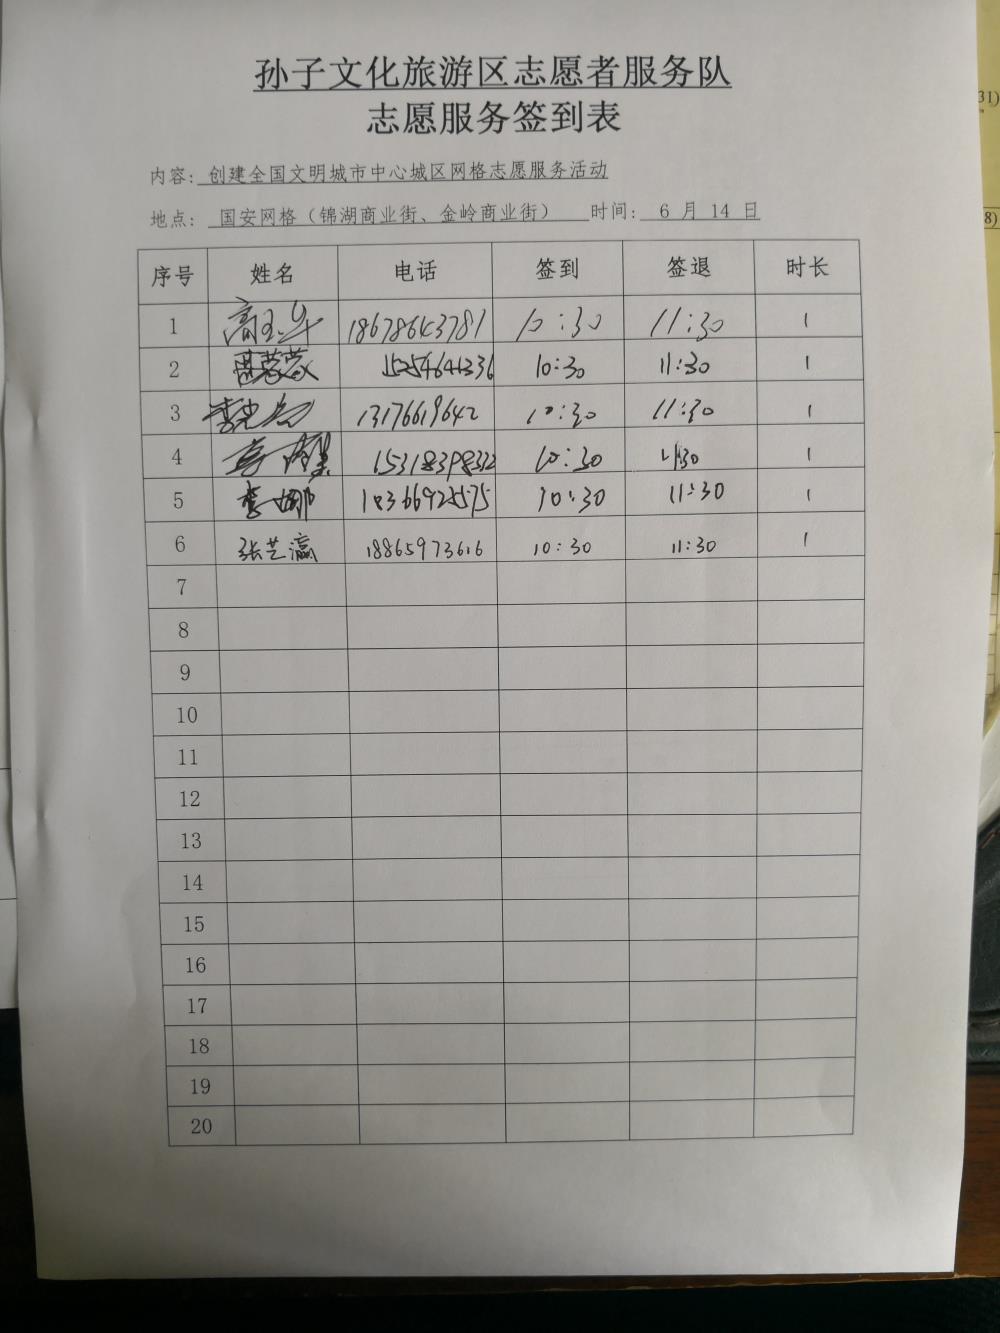 孙子文化旅游区志愿者服务队
志愿服务签到表
内容: 创建全国文明城市中心城区网格志愿服务活动
地点: 国安网格（锦湖商业街、金岭商业街） 时间: 6 月 14 日
序号 姓名 电话 签到 签退 时长
1 18678643781 10:30 11:30 1
2 10:30 11:30 1
3 13176619642 10:30 11:30 1
4 10:30 11:30 1
5 李娜 18366922575 10:30 11:30 1
6 张艺瀛 18865973616 10:30 11:30 1
7
8
9
10
11
12
13
14
15
16
17
18
19
20
31)
8)